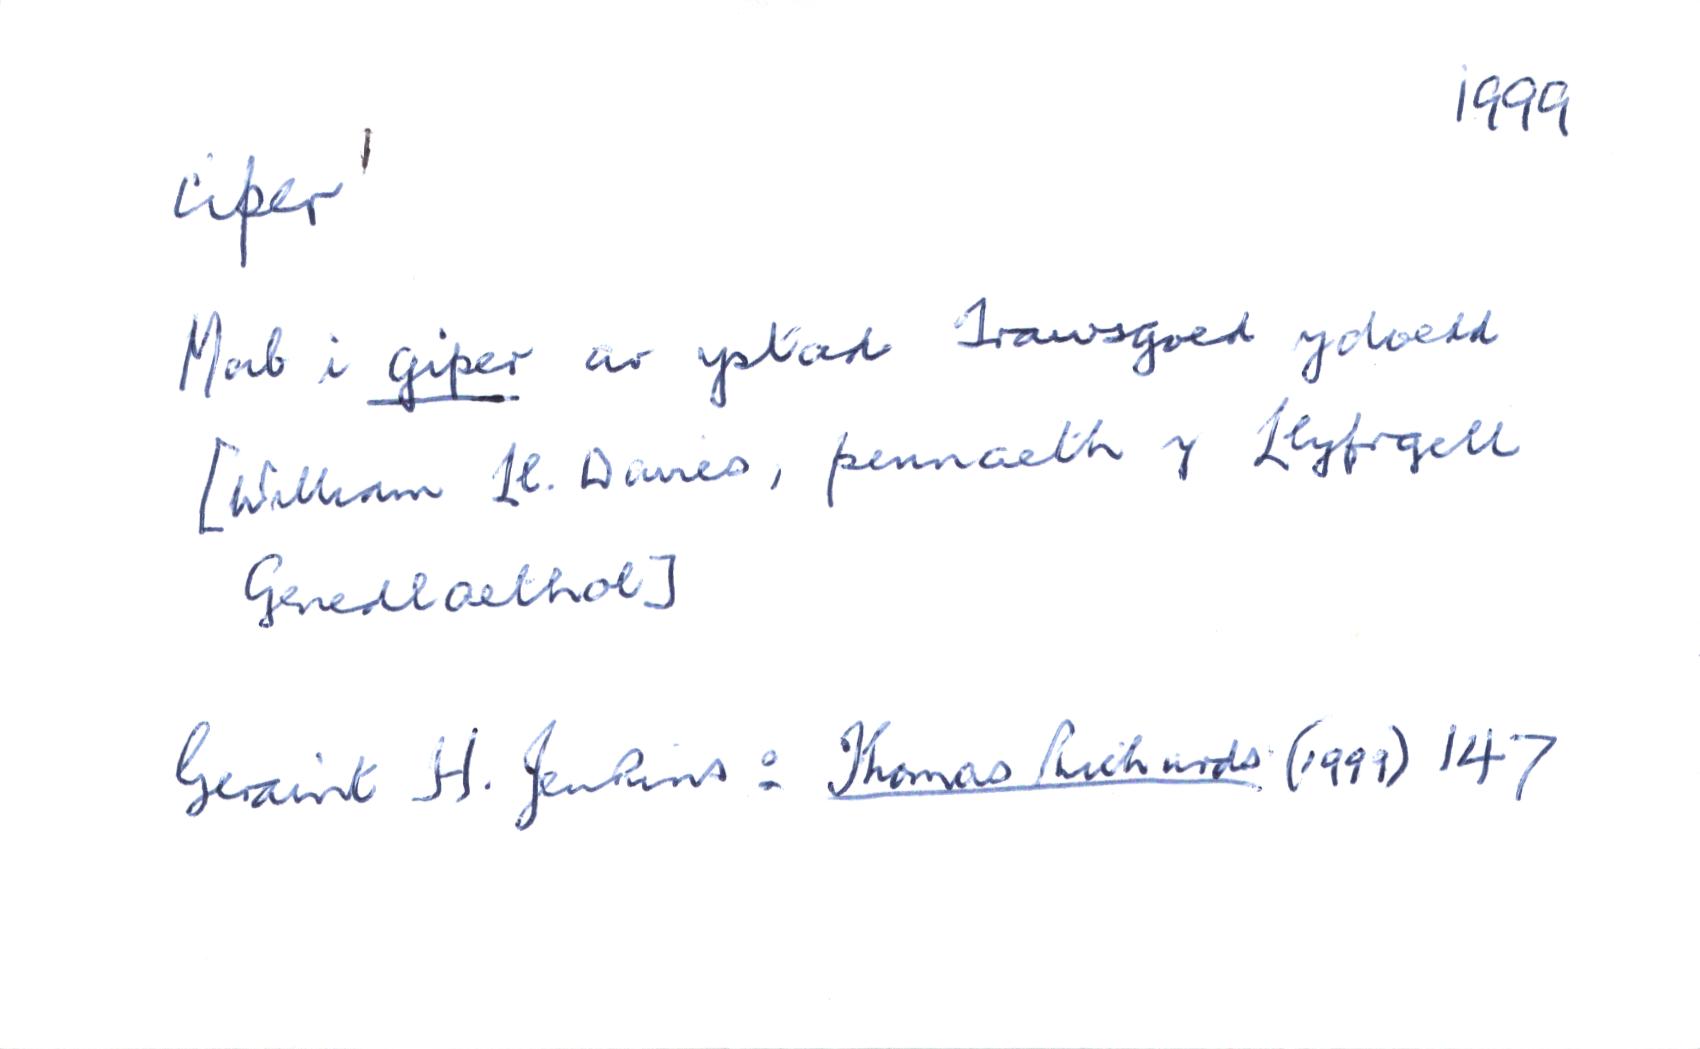 1999
ciper¹
Mab i giper ar ystad Trawsgoed ydoedd
[William Ll. Davies, pennaeth y Llyfrgell
Genedlaethol]
Geraint H. Jenkins: Thomas Richards (1999) 147